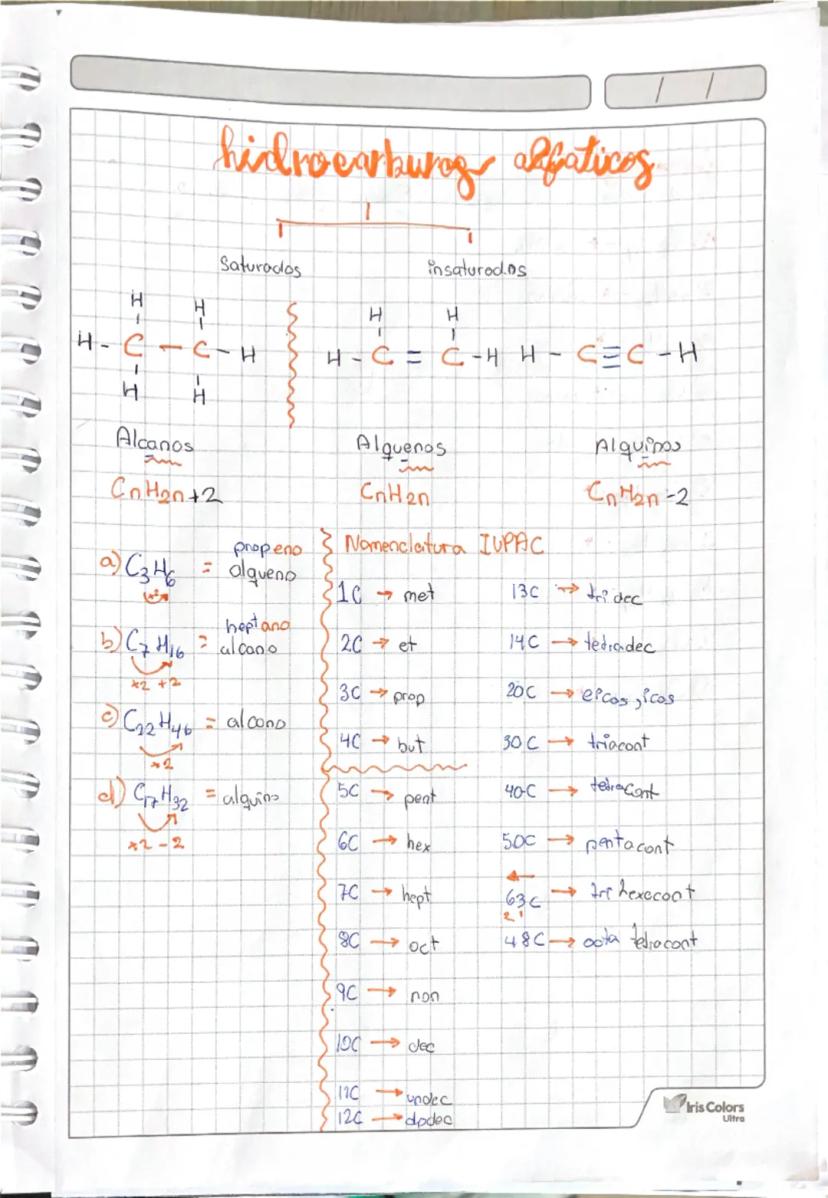 hidrocarburos alifaticos
saturados
insaturados
H H
H - C - C - H
H H
H H
H - C = C - H
H - C ≡ C - H
Alcanos
CnH2n+2
Alquenos
CnH2n
Alquinos
CnH2n-2
a) C3H6 = propeno alqueno
x2
b) C7H16 = heptano alcano
x2 +2
c) C22H46 = alcano
x2
d) C17H32 = alquino
x2 - 2
Nomenclatura IUPAC
1C → met
2C → et
3C → prop
4C → but
5C → pent
6C → hex
7C → hept
8C → oct
9C → non
10C → dec
11C → undec
12C → dodec
13C → tridec
14C → tetradec
20C → eicos, icos
30C → triacont
40C → tetracont
50C → pentacont
63C → tri hexacont
2 1
48C → octa tetracont
Iris Colors
Ultra